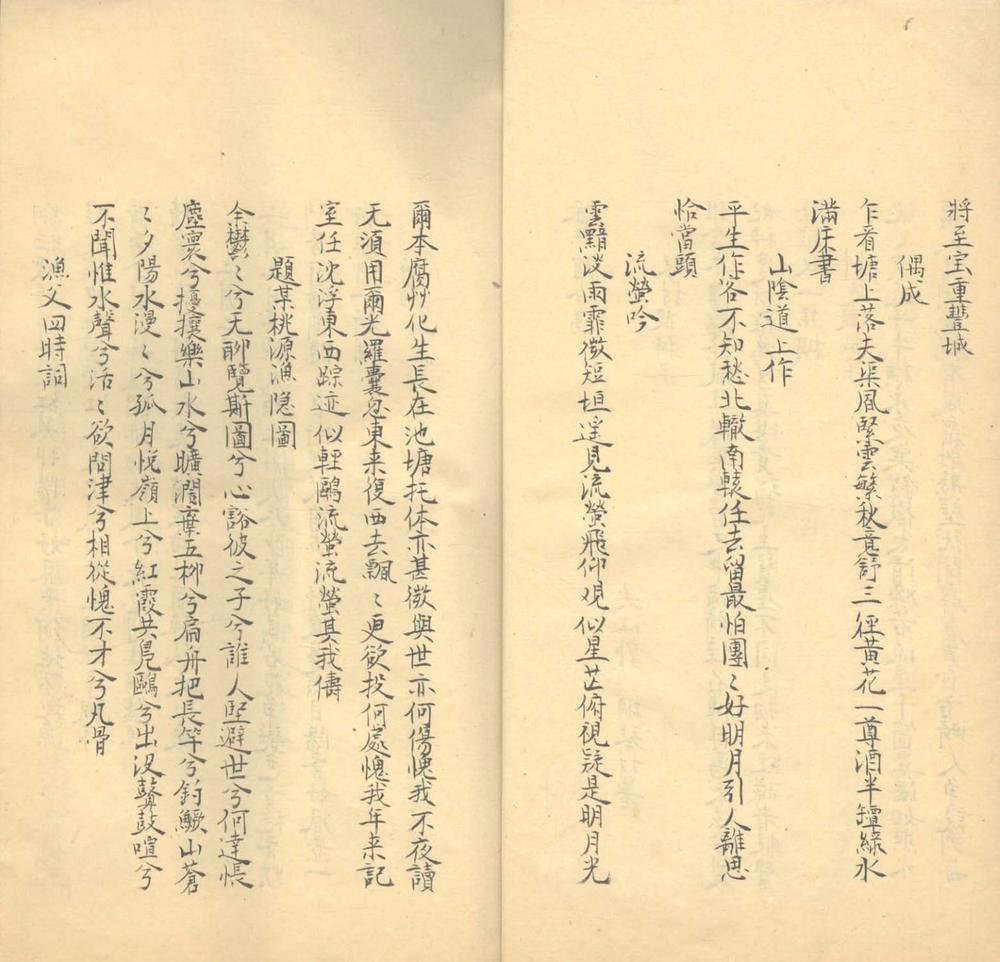 將至宝重豐城
偶成
乍看塘上落夫渠風緊雲繁秋竟舒三徑黃花一尊酒半罈綠水
滿床書
山陰道上作
平生作客不知愁北轍南轅任去留最怕團〻好明月引人離思
恰當頭
流螢吟
雲黯淡雨霏微短垣遥見流螢飛仰观似星芒俯視疑是明月光
爾本腐艸化生長在池塘托体亦甚微與世亦何傷愧我不夜讀
无須用爾光羅囊忽東来復西去飄〻更欲投何處愧我年来記
室任沈浮東西踪迹似輕鷗流螢流螢其我儔
題某桃源漁隐圖
余鬱〻兮无聊覽斯圖兮心豁彼之子兮誰人堅避世兮何達悵
塵寰兮擾攘樂山水兮曠濶棄五柳兮扁舟把長竿兮釣鱖山蒼
〻夕陽水漫〻兮孤月悦嶺上兮紅霞共鳧鷗兮出没鼙鼓喧兮
不聞惟水聲兮活〻欲問津兮相從愧不才兮凡骨
漁父四時詞